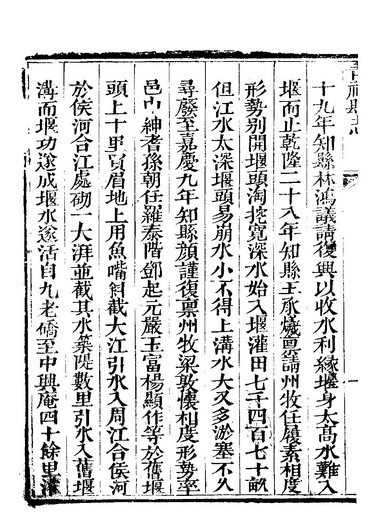 青神縣志
十九年知縣林鴻議請復興以收水利緣堰身太高水難入
堰而止乾隆二十八年知縣王承爔亶請州牧任履素相度
形勢別開堰頭淘挖寬深水始入堰灌田七千四百七十畝
但江水太深堰頭易崩水小不得上溝水大又多淤塞不久
尋廢至嘉慶九年知縣顔謹復禀州牧梁敦懷相度形勢率
邑內紳耆孫朝任羅泰階鄧起元嚴玉富楊顯作等於舊堰
頭上十里買眉地土用魚嘴斜截大江引水入周江合侯河
於侯河合江處砌一大湃並截其水築隄數里引水入舊堰
溝而堰功遂成堰水遂活自九老僑至中興庵四十餘里灌